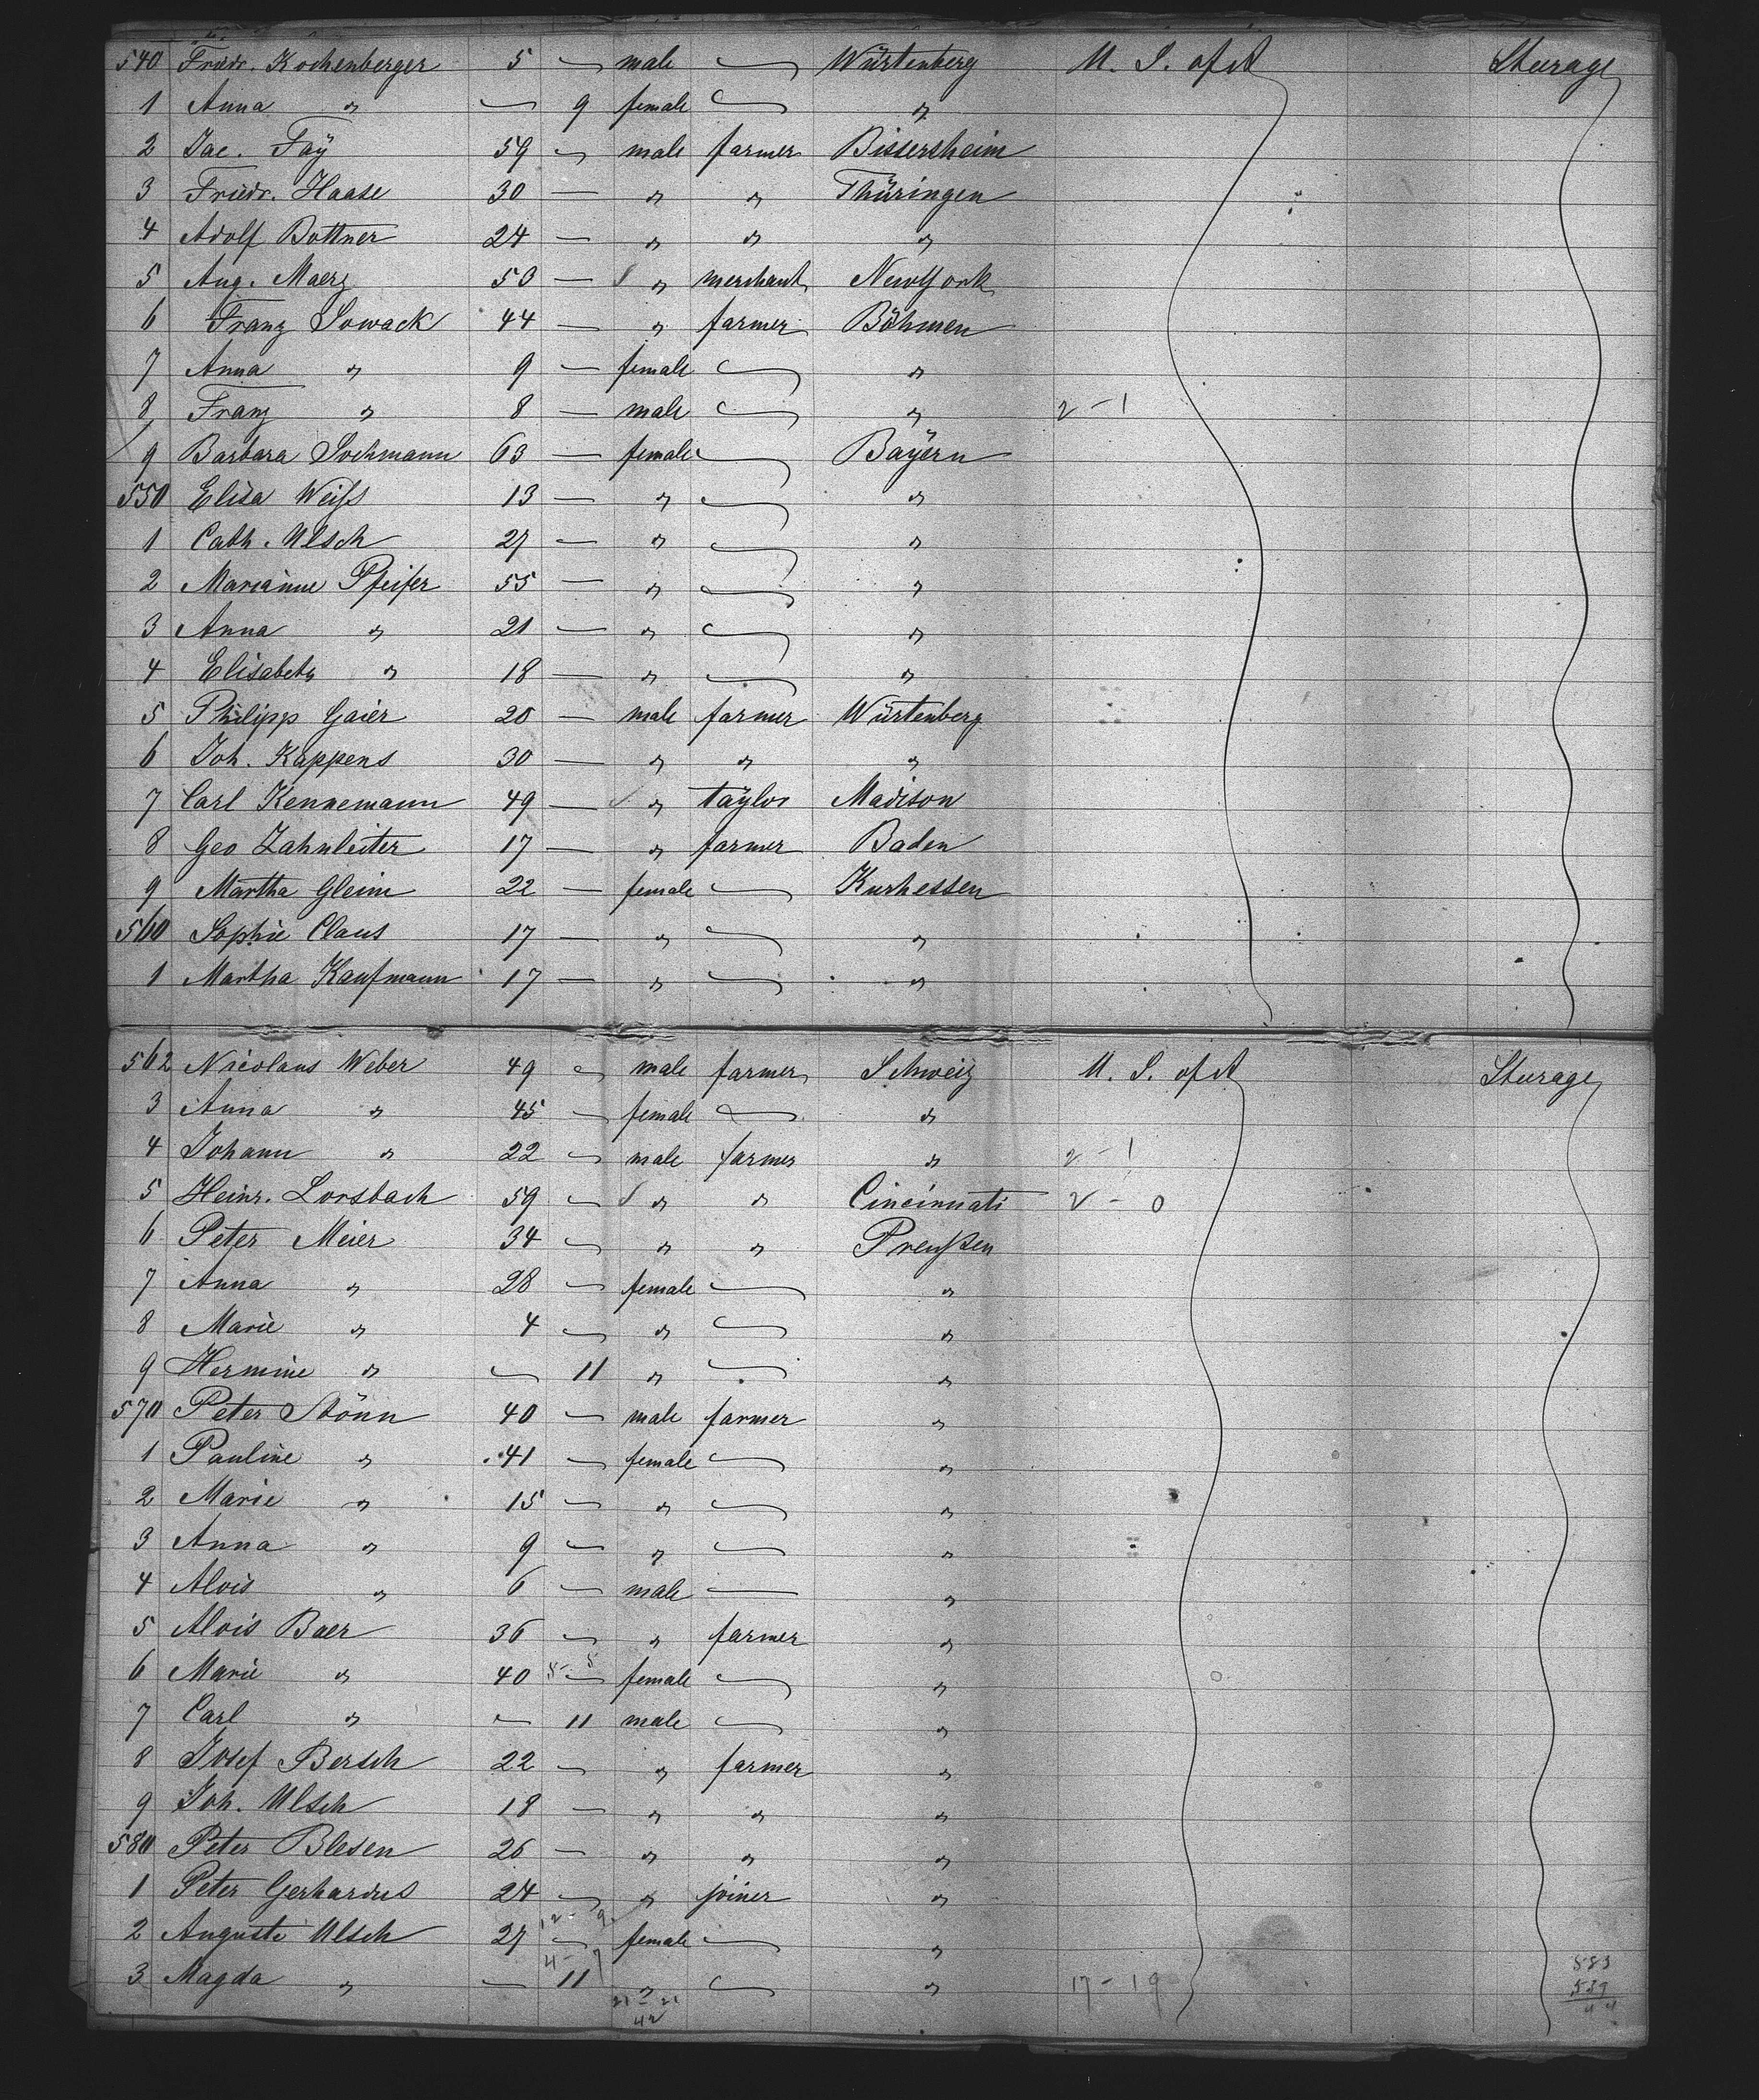 540 Friedr. Kochenberger 5 — male — Würtenberg U. S. of A Steerage
1 Anna " — 9 female — "
2 Jac. Faÿ 59 — male farmer Bissersheim
3 Friedr. Haase 30 — " " Thüringen
4 Adolf Bottner 24 — " " "
5 Aug. Maerz 50 — " merchant New York
6 Franz Sowack 44 — " farmer Böhmen
7 Anna " 9 — female — "
8 Franz " 8 — male — " 2 - 1
9 Barbara Lochmann 63 — female — Bayern
550 Elisa Weiss 13 — " — "
1 Cath. Ulsch 27 — " — "
2 Marianne Pfeifer 55 — " — "
3 Anna " 21 — " — "
4 Elisabeth " 18 — " — "
5 Philipp Gaier 20 — male farmer Würtenberg
6 Joh. Kappens 30 — " " "
7 Carl Kennemann 49 — " taylor Madison
8 Geo Zahnleiter 17 — " farmer Baden
9 Martha Gleim 22 — female — Kurhessen
560 Sophie Claus 17 — " — "
1 Martha Kaufmann 17 — " — "
562 Nicolaus Weber 49 — male farmer Schweiz U. S. of A Steerage
3 Anna " 45 — female — "
4 Johann " 22 — male farmer " 2 - 1
5 Heinr. Lorsbach 59 — " " Cincinnati 2 - 0
6 Peter Meier 34 — " " Preußen
7 Anna " 28 — female — "
8 Marie " 4 — " — "
9 Hermine " — 11 " — "
570 Peter Stönn 40 — male farmer "
1 Pauline " 41 — female — "
2 Marie " 15 — " — "
3 Anna " 9 — " — "
4 Alois " 6 — male — "
5 Alois Baer 36 — " farmer "
6 Marie " 40 — female — "
7 Carl " — 11 male — "
8 Josef Bersch 22 — " farmer "
9 Joh. Ulsch 18 — " " "
580 Peter Blesen 26 — " " "
1 Peter Gerhardus 24 — " joiner "
2 Auguste Ulsch 27 — female — "
3 Magda " — 11 " — " 17 - 19
21 - 21
42
583
539
44